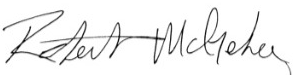 Robert McGehee